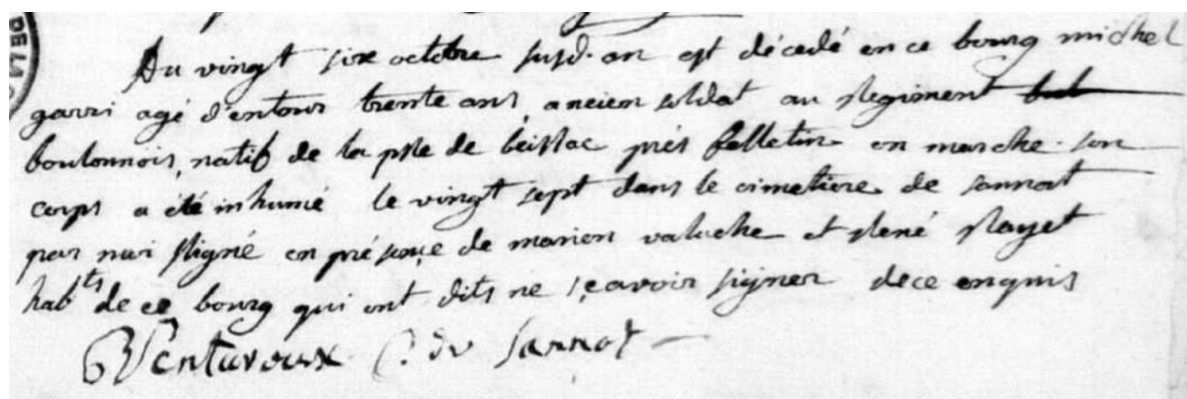 DE LA
Du vingt six octobre susd. an est décedé en ce bourg michel
garri agé d'entour trente ans, ancien soldat au regiment
boulonnois, natif de la psse de près felletin en marche. son
corps a été inhumé le vingt sept dans le cimetiere de sannat
par moi signé en présence de marien valuche et rené rayet
habts de ce bourg qui ont dits ne sçavoir signer de ce enquis
Ventenoux C. de Sannat